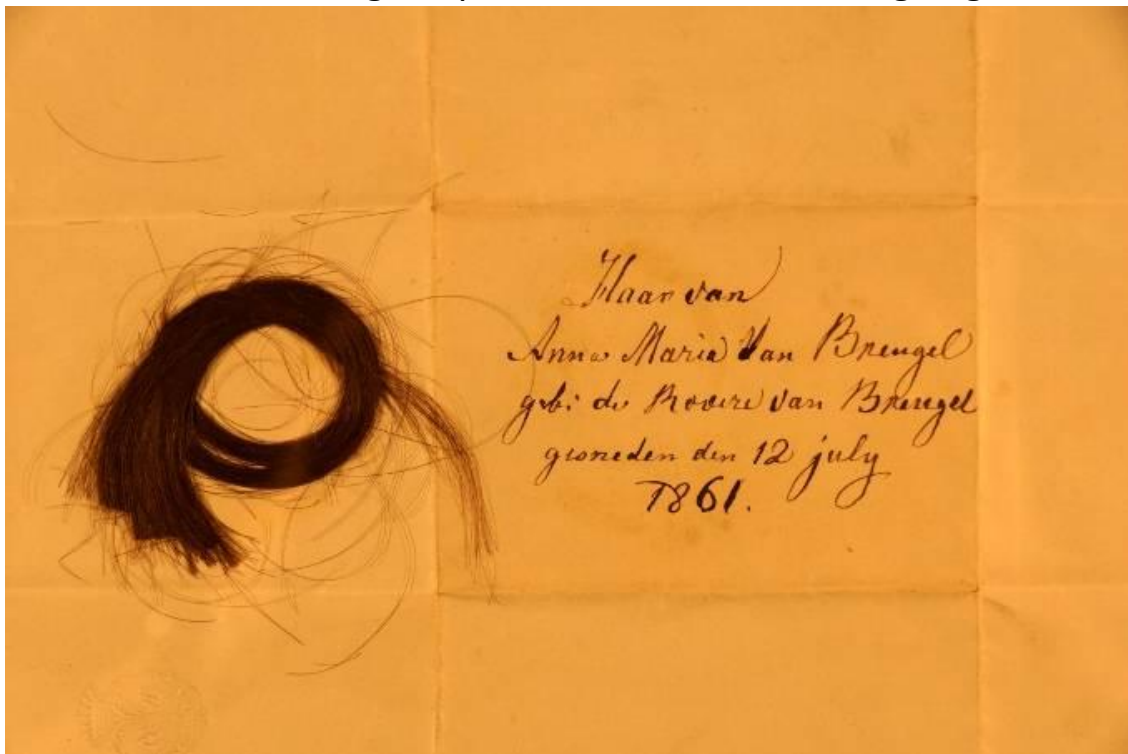 Haar van
Anna Maria Van Breugel
geb: de Rovere van Breugel
gesneden den 12 july
1861.